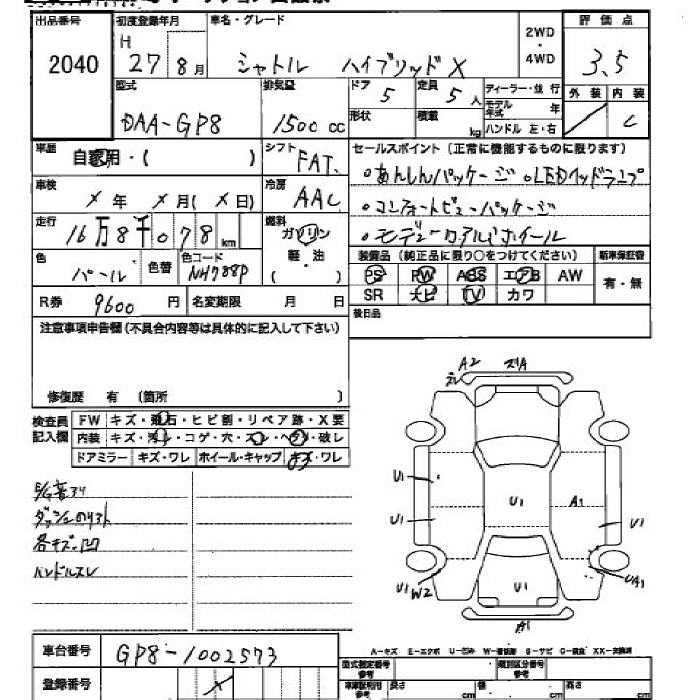 出品番号 初度登録年月 車名・グレード 2WD・4WD 評価点
2040 H 27 8月 シャトル ハイブリッドX 3.5
型式 排気量 ドア 5 定員 5人 ディーラー・並行 外装 内装
DAA-GP8 1500cc 形状 積載 kg モデル年式 年 ハンドル 左・右 C
車歴 自家用・( ) シフト FAT. セールスポイント(正常に機能するものに限ります)
車検 ×年 ×月(×日) 冷房 AAC ・あんしんパッケージ ・LEDヘッドランプ
走行 16万8千078km 燃料 ガソリン 軽・油 ( ) ・コンフォートビューパッケージ
・モデューロアルミホイール
色 パール 色替 色コード NH788P 装備品(純正品に限り○をつけてください) 新車保証書
PS PW ABS エアB AW 有・無
R券 9600円 名変期限 月 日 SR ナビ TV カワ
注意事項申告欄(不具合内容等は具体的に記入して下さい) 後日品
修復歴 有 (箇所 )
検査員記入欄 FW キズ・飛石・ヒビ割・リペア跡・X要
内装 キズ・汚れ・コゲ・穴・スレ・ヘタリ・破レ
ドアミラー キズ・ワレ ホイール・キャップ キズ・ワレ
ダッシュのリスト
各キズ凹
ハンドルスレ
A2 ズリA
U1 U1 A1
U1 U1
U1 W2 U1 UA1
A1
A-キズ E-エクボ U-凹み W-補修跡 S-サビ C-腐食 XX-交換済
車台番号 GP8-1002573 型式指定番号 参考 類別区分番号 参考
登録番号 × 車車証明用 参考 長さ cm 幅 cm 高さ cm